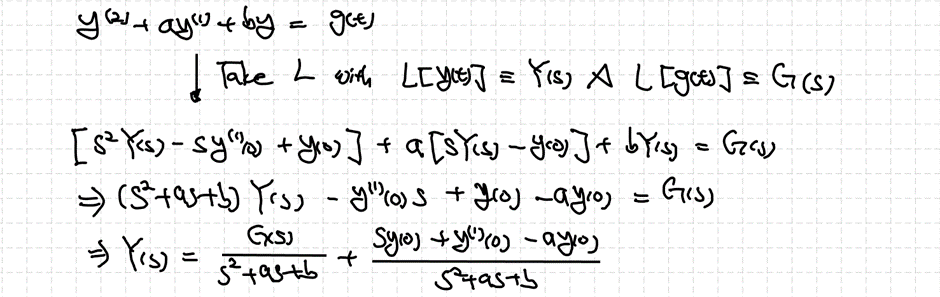 y⁽²⁾ + ay⁽¹⁾ + by = g(t)
↓ Take L with L[y(t)] ≡ Y(s) ∧ L[g(t)] ≡ G(s)
[s²Y(s) - sy⁽¹⁾(0) + y(0)] + a[sY(s) - y(0)] + bY(s) = G(s)
⇒ (s²+as+b) Y(s) - y⁽¹⁾(0)s + y(0) - ay(0) = G(s)
⇒ Y(s) = G(s)/(s²+as+b) + (sy(0) + y⁽¹⁾(0) - ay(0))/(s²+as+b)